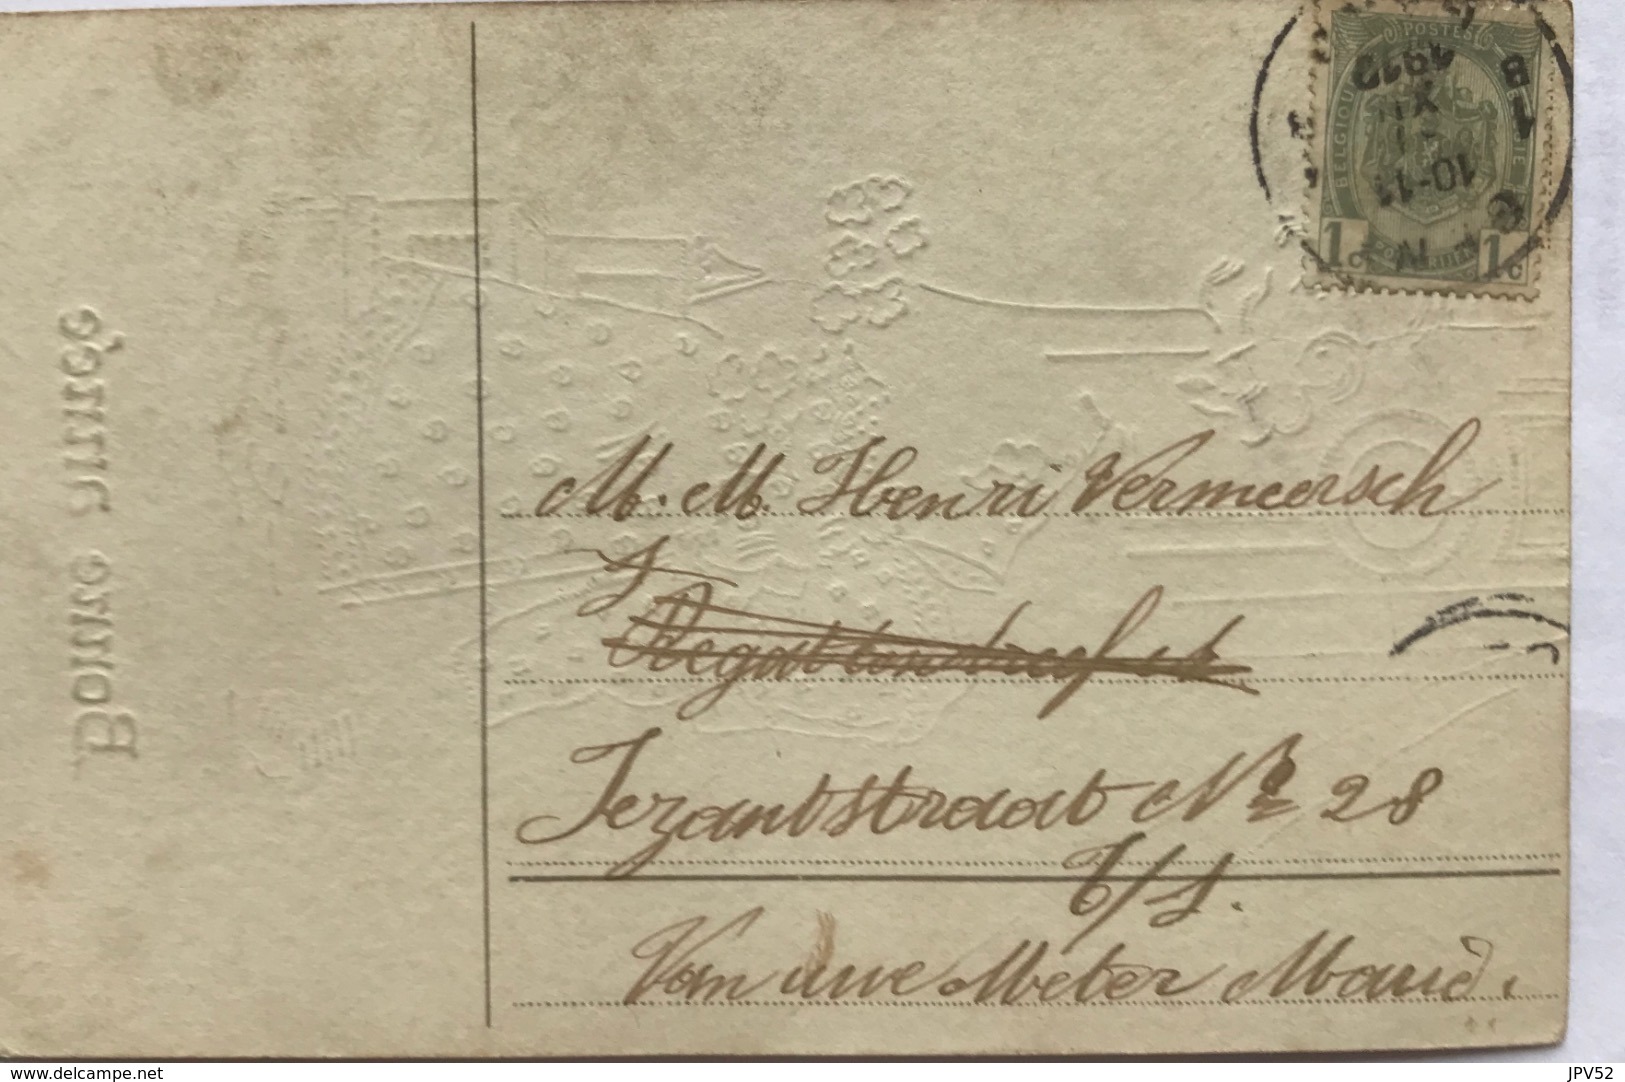 POSTES
BELGIQUE
1912
1
B
10-11
1c 1c
Bonne année
M. M. Henri Vermeersch
Jezantstraat No 28
T/S.
Van uwe Meter Marie.
www.delcampe.net
JPV52